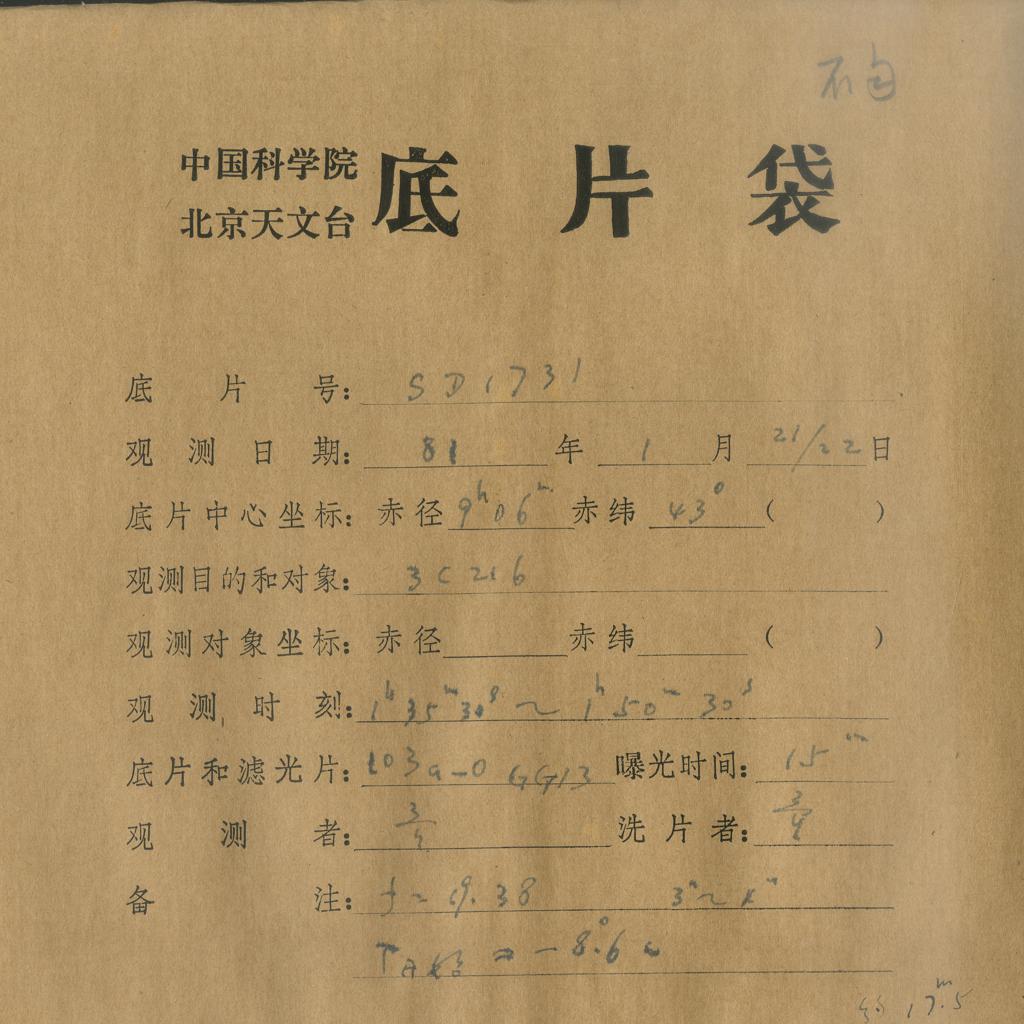 中国科学院
北京天文台
底片袋
底片号: SD1731
观测日期: 81年1月21/22日
底片中心坐标: 赤径 9h06m 赤纬 43°( )
观测目的和对象: 3C216
观测对象坐标: 赤径 赤纬 ( )
观测时刻: 1h35m30s~1h50m30s
底片和滤光片: 103a-O GG13 曝光时间: 15m
观测者: 洗片者:
备注: f=19.38 3"~4"
T始 = -8.6
约 17m.5